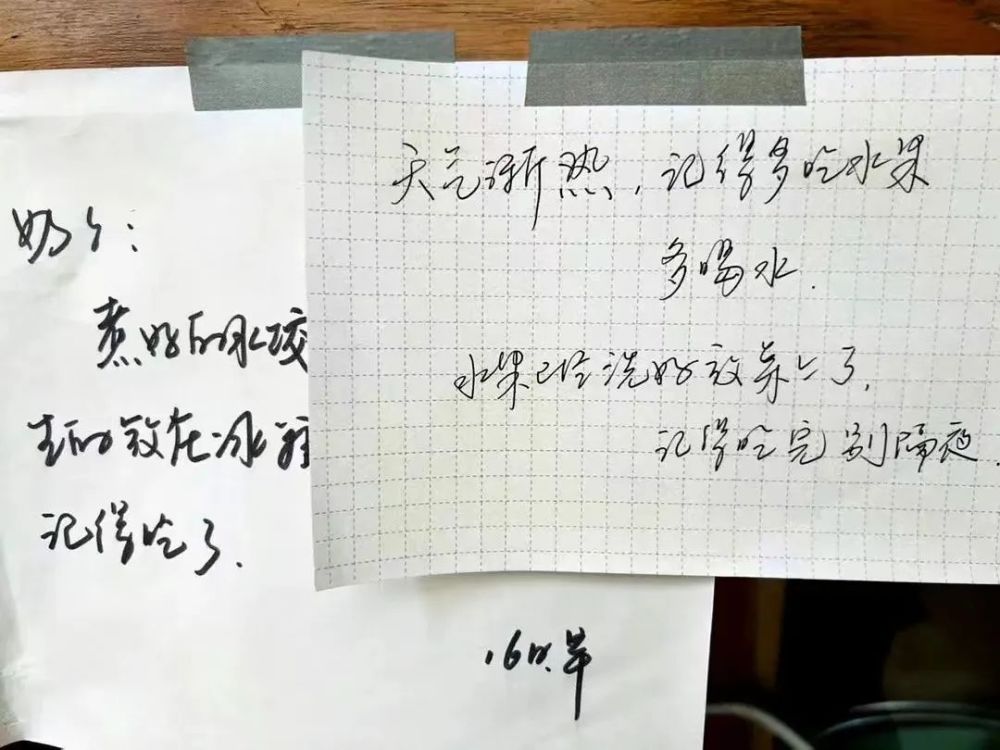 天气渐热，记得多吃水果
多喝水.
水果已经洗好放桌上了.
记得吃完别隔夜.
奶々:
煮好的水饺
生的放在冰箱
记得吃了.
16日.早